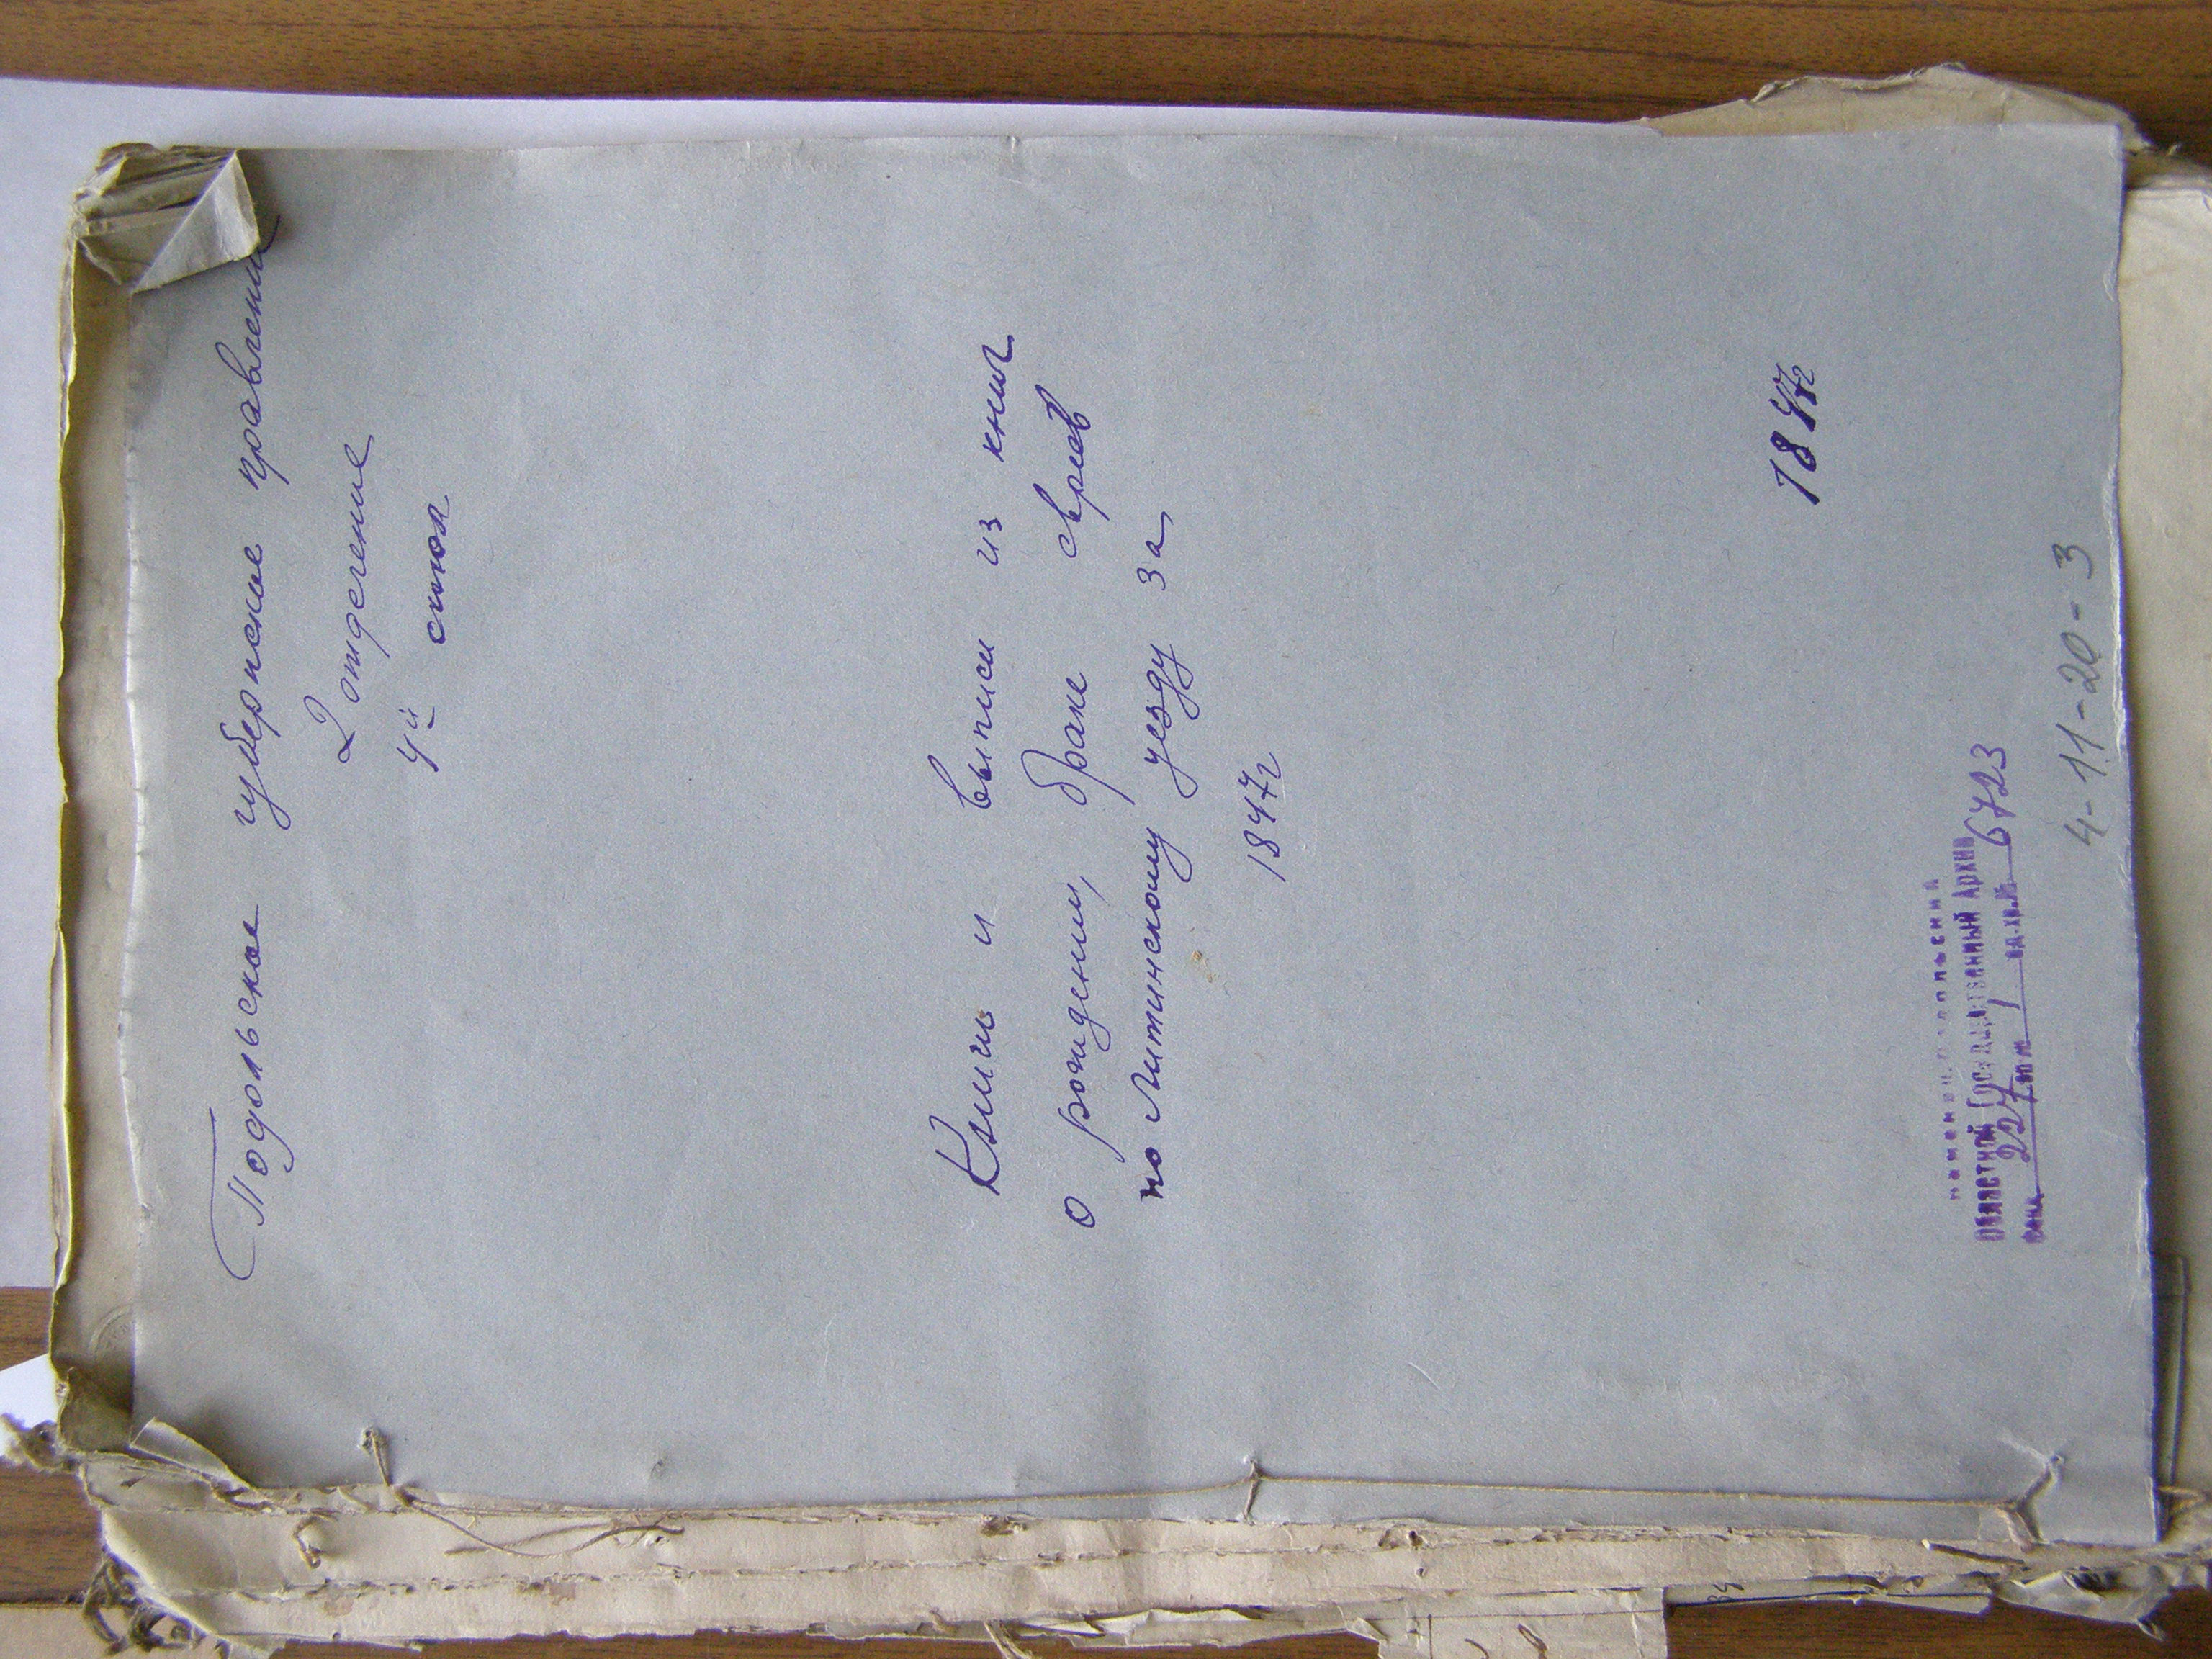 Подольское губернское правление
2 отделение
4й стол
Книги и выписи из книг
о рождении, браке евреев
по Литинскому уезду за
1847г
1847г
Каменец-Подольский
Областной Государственный Архив
Фонд 227 оп. 1 ед.хр.№ 6723
4-11-20-3